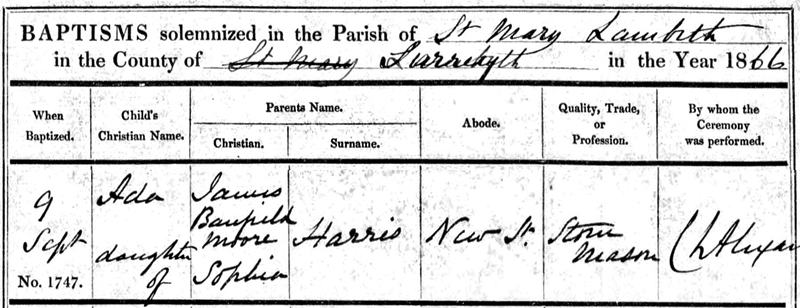 BAPTISMS solemnized in the Parish of St Mary Lambeth
in the County of St Mary in the Year 1866
When Baptized.
Child's Christian Name.
Parents Name.
Christian.
Surname.
Abode.
Quality, Trade, or Profession.
By whom the Ceremony was performed.
9
Sept
No. 1747.
Ada
daughter
of
James
Banfield
Moore
Sophia
Harris
New St.
Stone
Mason